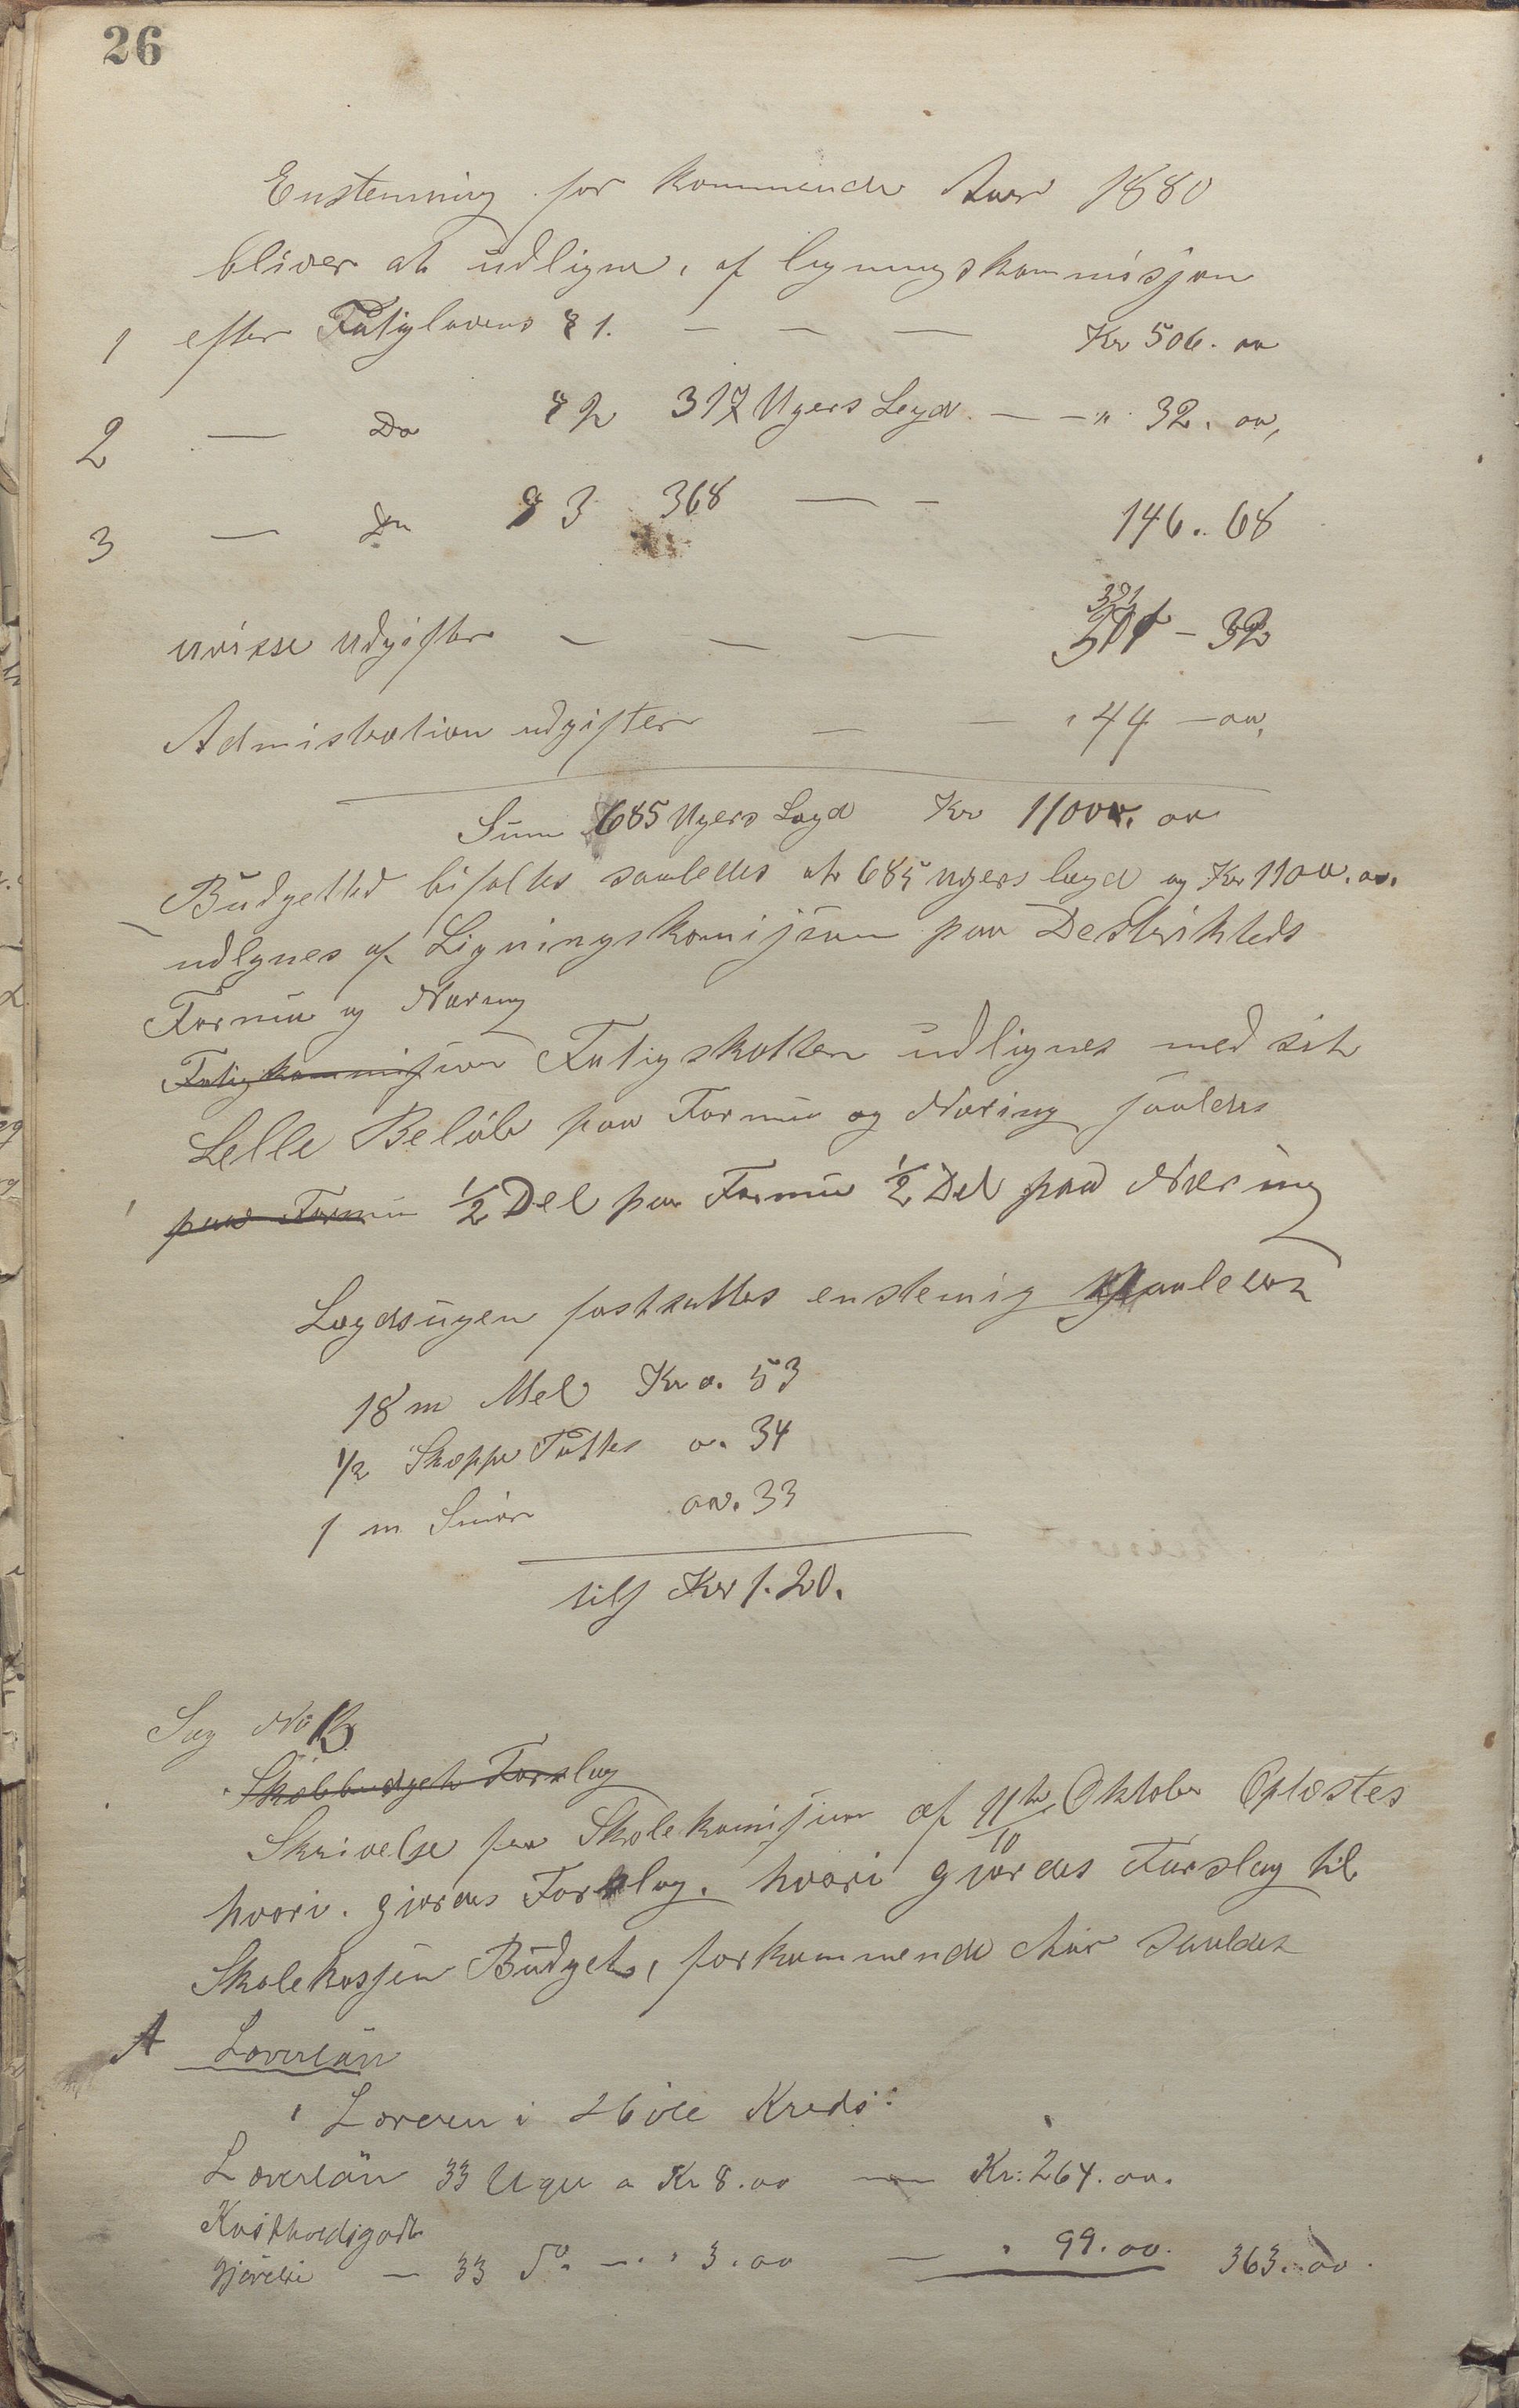 26
Enstemmig for kommende Aar 1880
bliver at udligne, af ligningskommisjon
1 efter Fatiglovens § 1. — — — Kr 506. oo
2 — Do § 2 317 Ugers Legd — — " 32. oo,
3 — Do § 3 368 — — 146.. 68
uvisse Udgifter — — — 371 - 32
Admistration udgifter — — " 44 — oo,
Sum 685 Ugers Lægd Kr 1100. oo
Budgetted bifaltes saaledes at 685 ugers lægd og Kr 1100. oo.
udlignes af Ligningskomisjon paa Destriktets
Formue og Næring
Fatigkommisjon Fatigskatten udlignes med sit
hele Beløb paa Formue og Næring saaledes
paa Formue 1/2 Del paa Formue 1/2 Del paa Næring
Lægdsugen fastsattes enstemig saaledes
18 m Mel Kr o. 53
1/2 Skeppe Pottes o. 34
1 m Smør oo. 33
tils Kr 1.20.
Sag No 13
Skolebudget Forslag
Skrivelse fra Skolekomisjon af 11te/10 Oktober Oplæstes
hvori. gjordes Forslag. hvori gjordes Forslag til
Skolekassens Budget, for kommende Aar saaledes
A Lærerløn
Læreren i Høle Kreds:
Lærerløn 33 Uger a Kr 8.oo — Kr: 264. oo.
Kostholdsgodt
gjørelse — 33 Do — " 3.oo — " 99.oo. 363..oo.